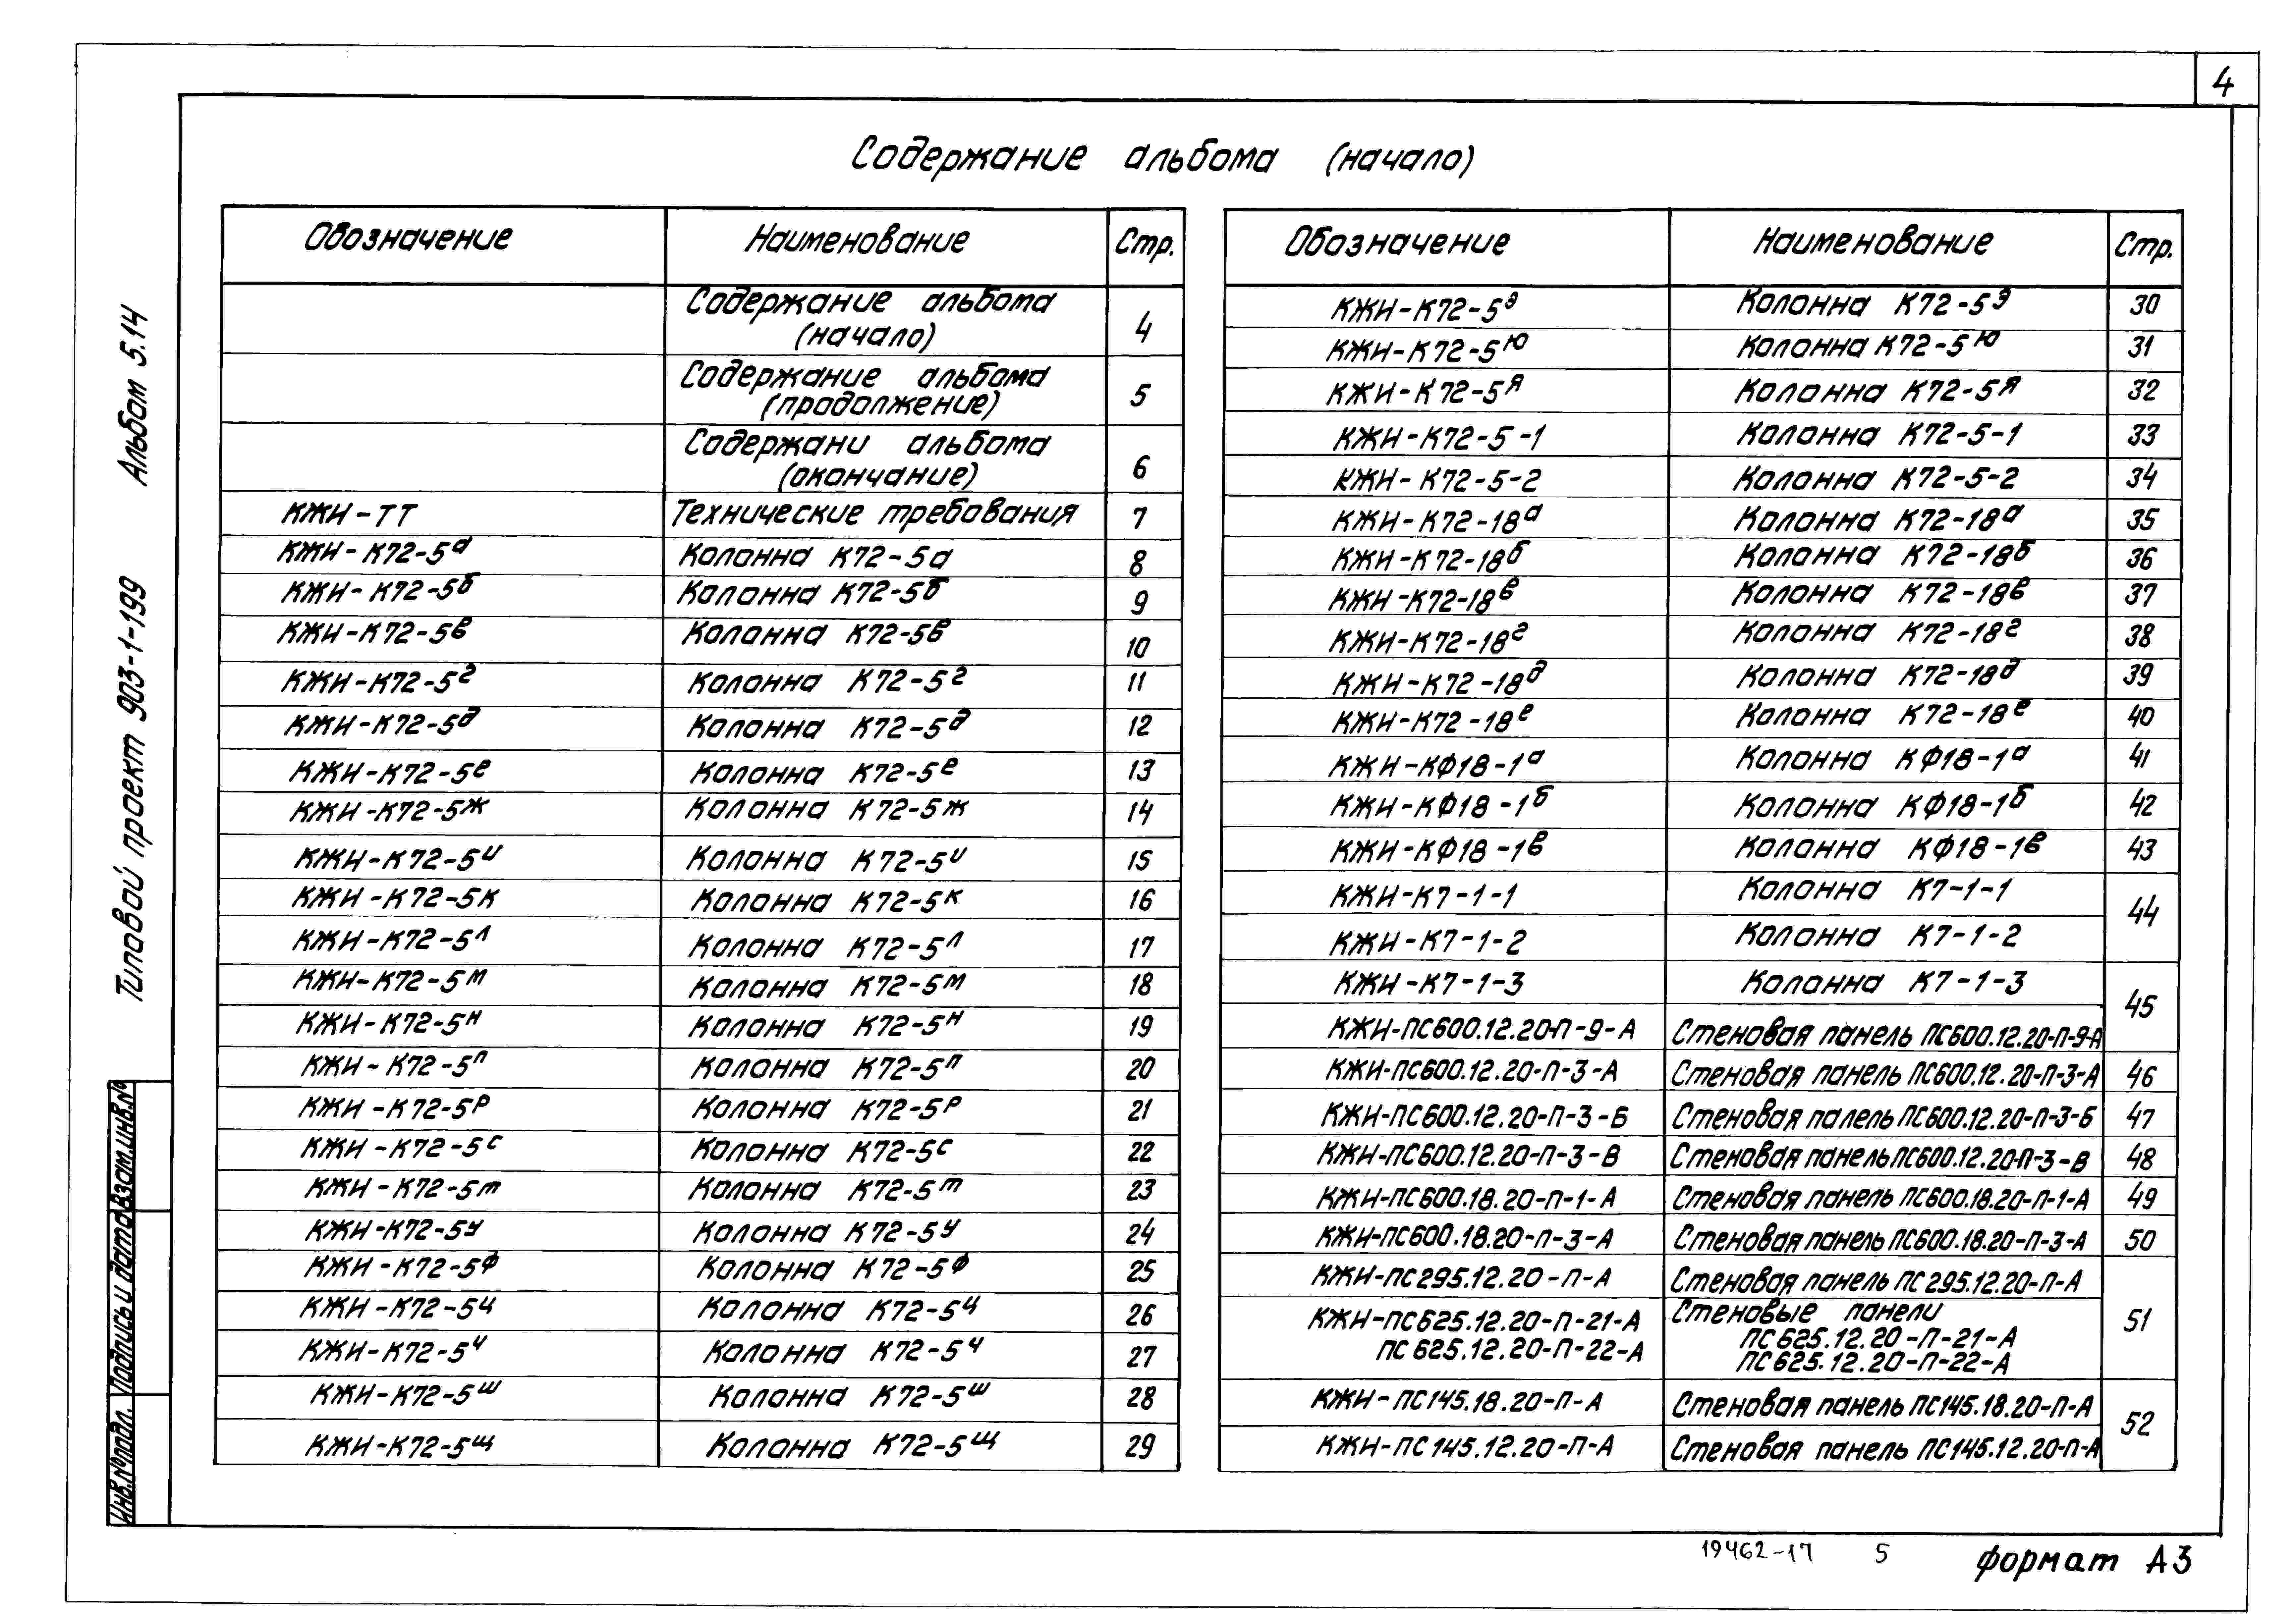 4
Содержание альбома (начало)
Обозначение Наименование Стр.
Содержание альбома
(начало) 4
Содержание альбома
(продолжение) 5
Содержани альбома
(окончание) 6
КЖИ-ТТ Технические требования 7
КЖИ-К72-5а Колонна К72-5а 8
КЖИ-К72-5б Колонна К72-5б 9
КЖИ-К72-5в Колонна К72-5в 10
КЖИ-К72-5г Колонна К72-5г 11
КЖИ-К72-5д Колонна К72-5д 12
КЖИ-К72-5е Колонна К72-5е 13
КЖИ-К72-5ж Колонна К72-5ж 14
КЖИ-К72-5и Колонна К72-5и 15
КЖИ-К72-5к Колонна К72-5к 16
КЖИ-К72-5л Колонна К72-5л 17
КЖИ-К72-5м Колонна К72-5м 18
КЖИ-К72-5н Колонна К72-5н 19
КЖИ-К72-5п Колонна К72-5п 20
КЖИ-К72-5р Колонна К72-5р 21
КЖИ-К72-5с Колонна К72-5с 22
КЖИ-К72-5т Колонна К72-5т 23
КЖИ-К72-5у Колонна К72-5у 24
КЖИ-К72-5ф Колонна К72-5ф 25
КЖИ-К72-5ц Колонна К72-5ц 26
КЖИ-К72-5ч Колонна К72-5ч 27
КЖИ-К72-5ш Колонна К72-5ш 28
КЖИ-К72-5щ Колонна К72-5щ 29
Обозначение Наименование Стр.
КЖИ-К72-5э Колонна К72-5э 30
КЖИ-К72-5ю Колонна К72-5ю 31
КЖИ-К72-5я Колонна К72-5я 32
КЖИ-К72-5-1 Колонна К72-5-1 33
КЖИ-К72-5-2 Колонна К72-5-2 34
КЖИ-К72-18а Колонна К72-18а 35
КЖИ-К72-18б Колонна К72-18б 36
КЖИ-К72-18в Колонна К72-18в 37
КЖИ-К72-18г Колонна К72-18г 38
КЖИ-К72-18д Колонна К72-18д 39
КЖИ-К72-18е Колонна К72-18е 40
КЖИ-КФ18-1а Колонна КФ18-1а 41
КЖИ-КФ18-1б Колонна КФ18-1б 42
КЖИ-КФ18-1в Колонна КФ18-1в 43
КЖИ-К7-1-1 Колонна К7-1-1 44
КЖИ-К7-1-2 Колонна К7-1-2
КЖИ-К7-1-3 Колонна К7-1-3 45
КЖИ-ПС600.12.20-П-9-А Стеновая панель ПС600.12.20-П-9-А
КЖИ-ПС600.12.20-П-3-А Стеновая панель ПС600.12.20-П-3-А 46
КЖИ-ПС600.12.20-П-3-Б Стеновая палель ПС600.12.20-П-3-Б 47
КЖИ-ПС600.12.20-П-3-В Стеновая панель ПС600.12.20-П-3-В 48
КЖИ-ПС600.18.20-П-1-А Стеновая панель ПС600.18.20-П-1-А 49
КЖИ-ПС600.18.20-П-3-А Стеновая панель ПС600.18.20-П-3-А 50
КЖИ-ПС295.12.20-П-А Стеновая панель ПС295.12.20-П-А 51
Стеновые панели
КЖИ-ПС625.12.20-П-21-А ПС625.12.20-П-21-А
ПС625.12.20-П-22-А ПС625.12.20-П-22-А
КЖИ-ПС145.18.20-П-А Стеновая панель ПС145.18.20-П-А 52
КЖИ-ПС145.12.20-П-А Стеновая панель ПС145.12.20-П-А
Типовой проект 903-1-199 Альбом 5.14
Инв.№подл. Подпись и дата Взам.инв.№
19462-17 5 формат А3